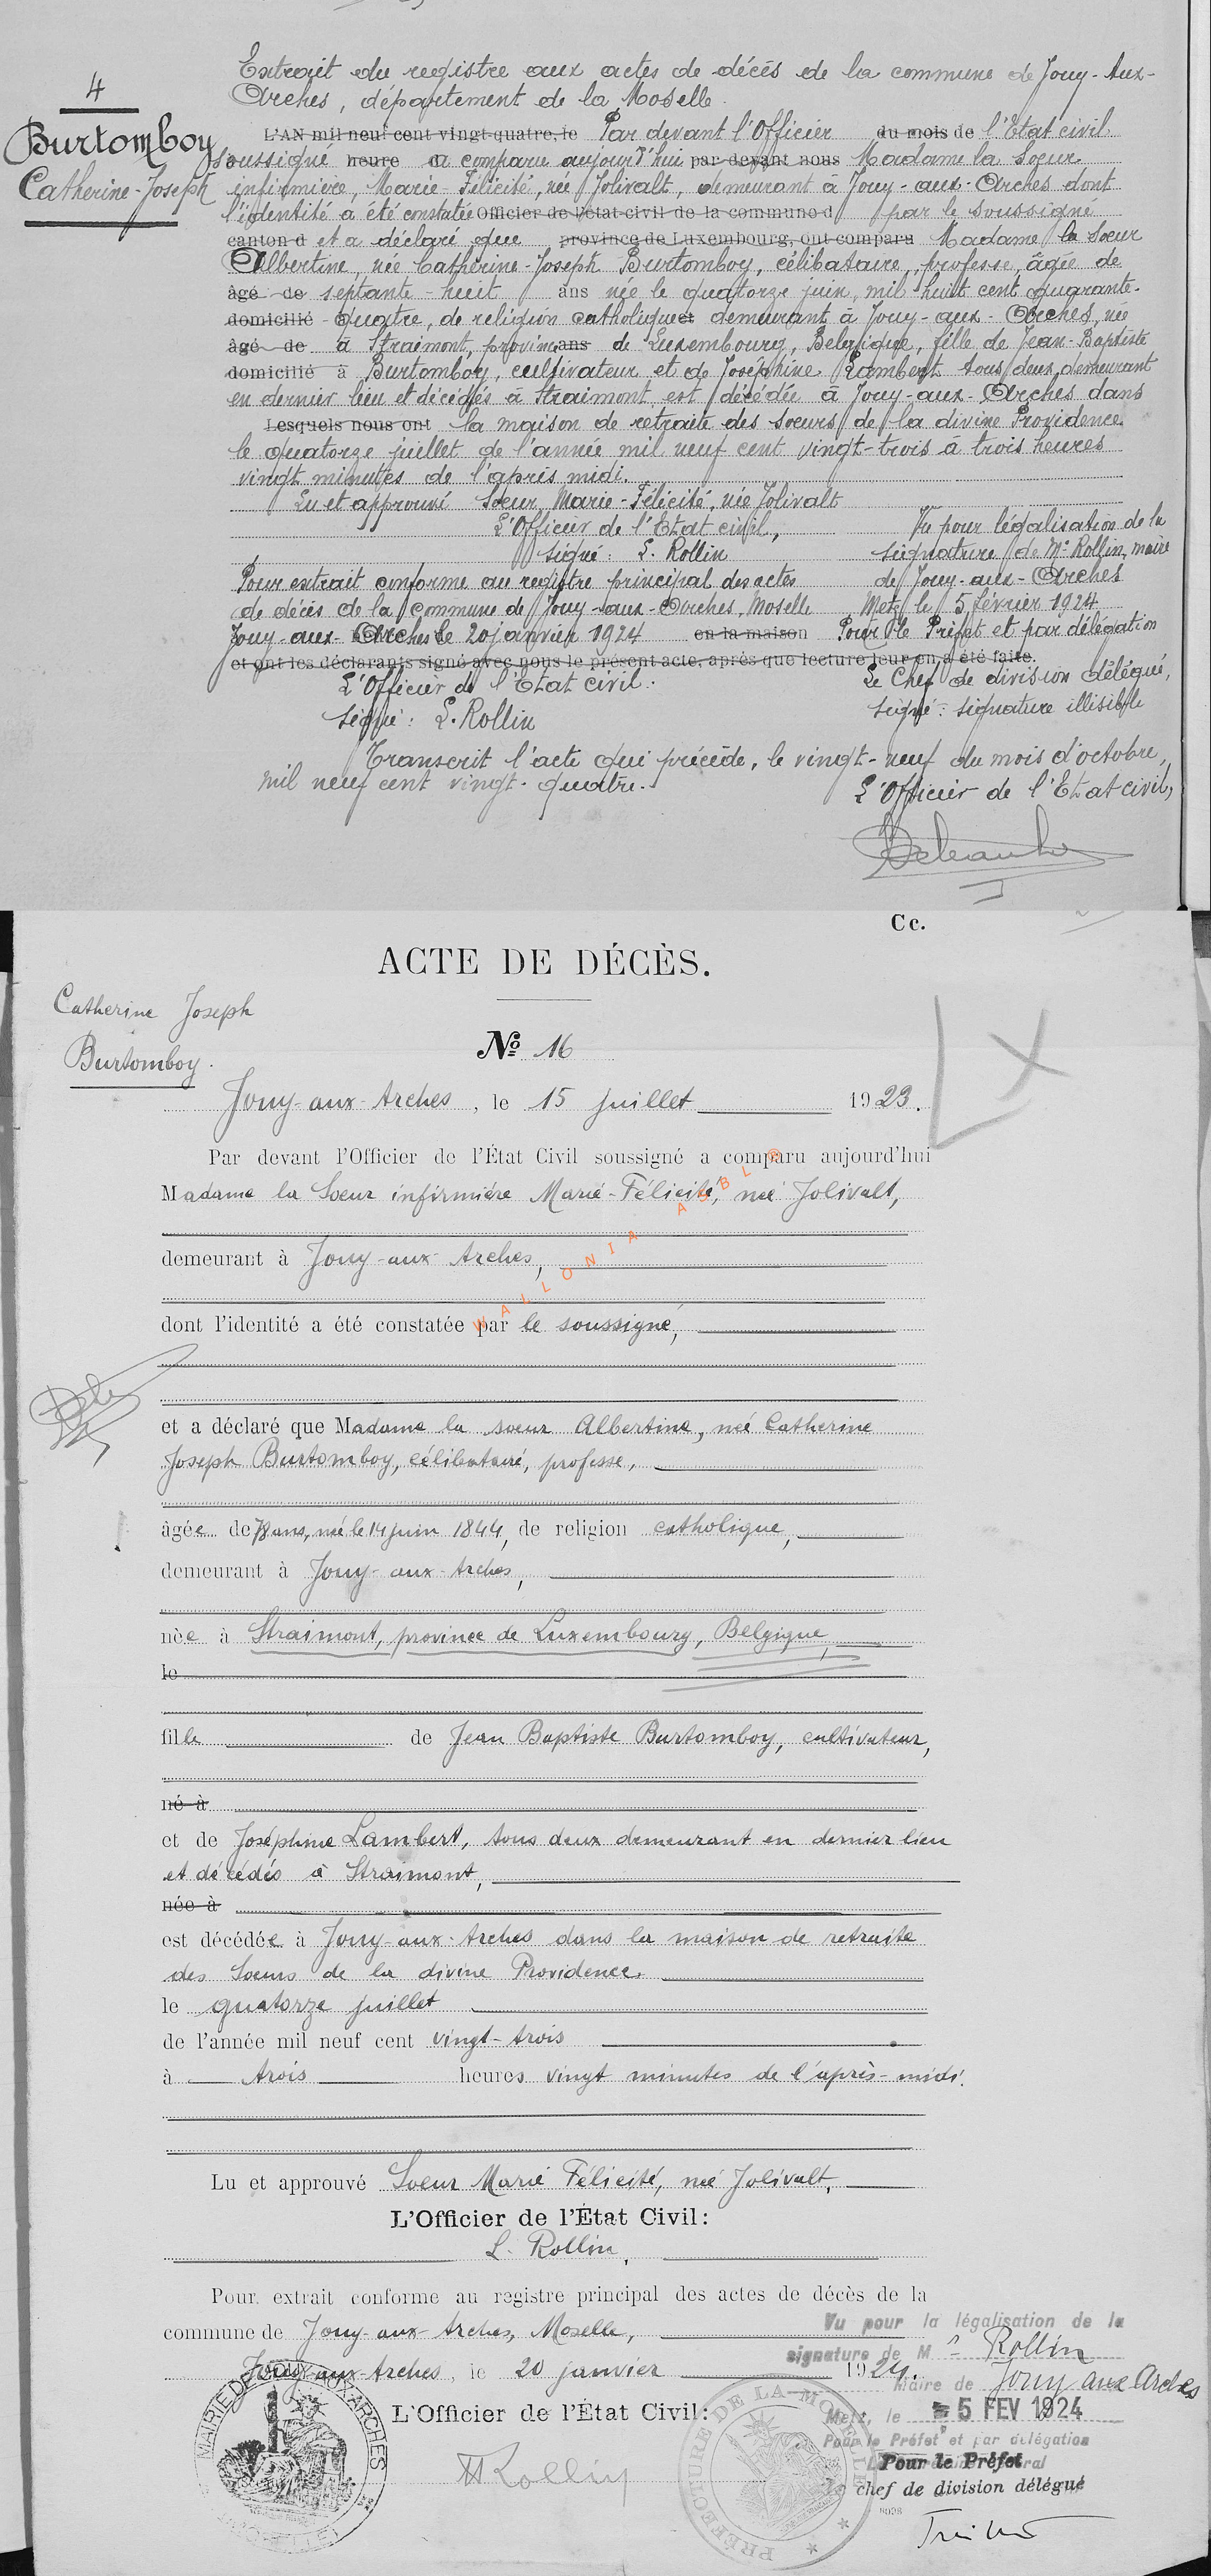 Extrait du registre aux actes de décès de la commune de Jouy-Aux-
Arches, département de la Moselle
4
Burtomboy
Catherine-Joseph
L'AN mil neuf cent vingt-quatre, le Par devant l'Officier du mois de l'Etat civil
soussigné heure a comparu aujourd'hui par-devant nous Madame la Soeur
infirmière, Marie-Félicité, née Jolivalt, demeurant à Jouy-aux-Arches dont
l'identité a été constatée Officier de l'état civil de la commune d par le soussigné
canton d et a déclaré que province de Luxembourg, ont comparu Madame la Soeur
Albertine, née Catherine-Joseph Burtomboy, célibataire, professe, âgée de
âgé de septante-huit ans née le quatorze juin, mil huit cent quarante-
domicilié quatre, de religion catholique et demeurant à Jouy-aux-Arches, née
âgé de à Straimont, province ans de Luxembourg, Belgique, fille de Jean-Baptiste
domicilié à Burtomboy, cultivateur et de Joséphine Lambert tous deux demeurant
en dernier lieu et décédés à Straimont est décédée à Jouy-aux-Arches dans
Lesquels nous ont la maison de retraite des soeurs de la divine Providence
le quatorze juillet de l'année mil neuf cent vingt-trois à trois heures
vingt minutes de l'après midi.
Lu et approuvé Soeur Marie-Félicité, née Jolivalt
L'Officier de l'Etat civil,
signé: L. Rollin
Vu pour légalisation de la
signature de Mr Rollin, maire
de Jouy-aux-Arches
Metz le 5 février 1924
Pour extrait conforme au registre principal des actes
de décès de la commune de Jouy-aux-Arches, Moselle
Jouy-aux-Arches le 20 janvier 1924 en la maison Pour le Préfet et par délégation
et ont les déclarants signé avec nous le présent acte, après que lecture leur en a été faite.
L'Officier de l'Etat civil:
signé: L. Rollin
Le Chef de division délégué,
signé: signature illisible
Transcrit l'acte qui précède, le vingt-neuf du mois d'octobre,
mil neuf cent vingt-quatre.
L'Officier de l'Etat civil,
Cc.
ACTE DE DÉCÈS.
Catherine Joseph
Burtomboy.
No 16
Jouy-aux-Arches, le 15 juillet 1923.
Par devant l'Officier de l'État Civil soussigné a comparu aujourd'hui
Madame la Soeur infirmière Marie-Félicité, née Jolivalt,
demeurant à Jouy-aux-Arches,
WALLONIA ASBL ®
dont l'identité a été constatée par le soussigné,
et a déclaré que Madame la soeur Albertine, née Catherine
Joseph Burtomboy, célibataire, professe,
âgée de 78 ans, née le 14 juin 1844, de religion catholique,
demeurant à Jouy-aux-Arches,
née à Straimont, province de Luxembourg, Belgique,
le
fille de Jean Baptiste Burtomboy, cultivateur,
né à
et de Joséphine Lambert, tous deux demeurant en dernier lieu
et décédés à Straimont,
née à
est décédée à Jouy-aux-Arches dans la maison de retraite
des Soeurs de la divine Providence.
le quatorze juillet
de l'année mil neuf cent vingt-trois
à trois heures vingt minutes de l'après-midi.
Lu et approuvé Soeur Marie Félicité, née Jolivalt,
L'Officier de l'État Civil:
L. Rollin,
Pour extrait conforme au registre principal des actes de décès de la
commune de Jouy-aux-Arches, Moselle,
Jouy-aux-Arches, le 20 janvier 1924.
L'Officier de l'État Civil:
Rollin
MAIRIE DE JOUY-AUX-ARCHES
PRÉFECTURE DE LA MOSELLE
Vu pour la légalisation de la
signature de Mr Rollin
Maire de Jouy aux Arches
Metz, le 5 FEV 1924
Pour le Préfet et par délégation
Pour le Préfet
Le chef de division délégué